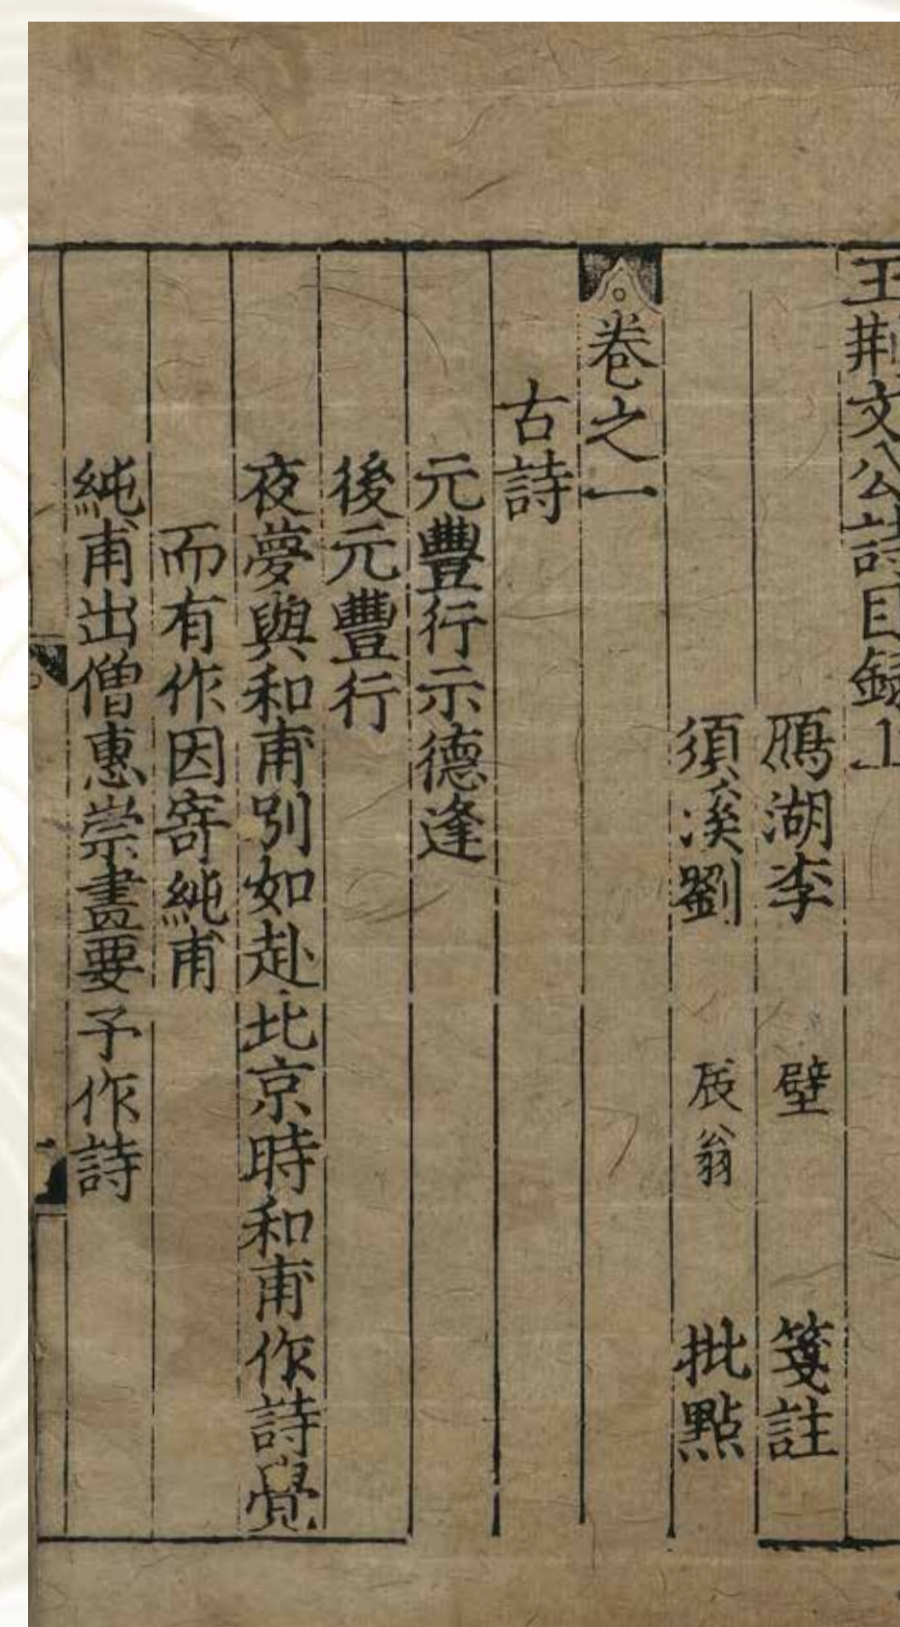 王荆文公詩目録上
鴈湖李 壁 箋註
須溪劉 辰翁 批點
卷之一
古詩
元豐行示德逢
後元豐行
夜夢與和甫别如赴北京時和甫作詩覺
而有作因寄純甫
純甫出僧惠崇畫要予作詩